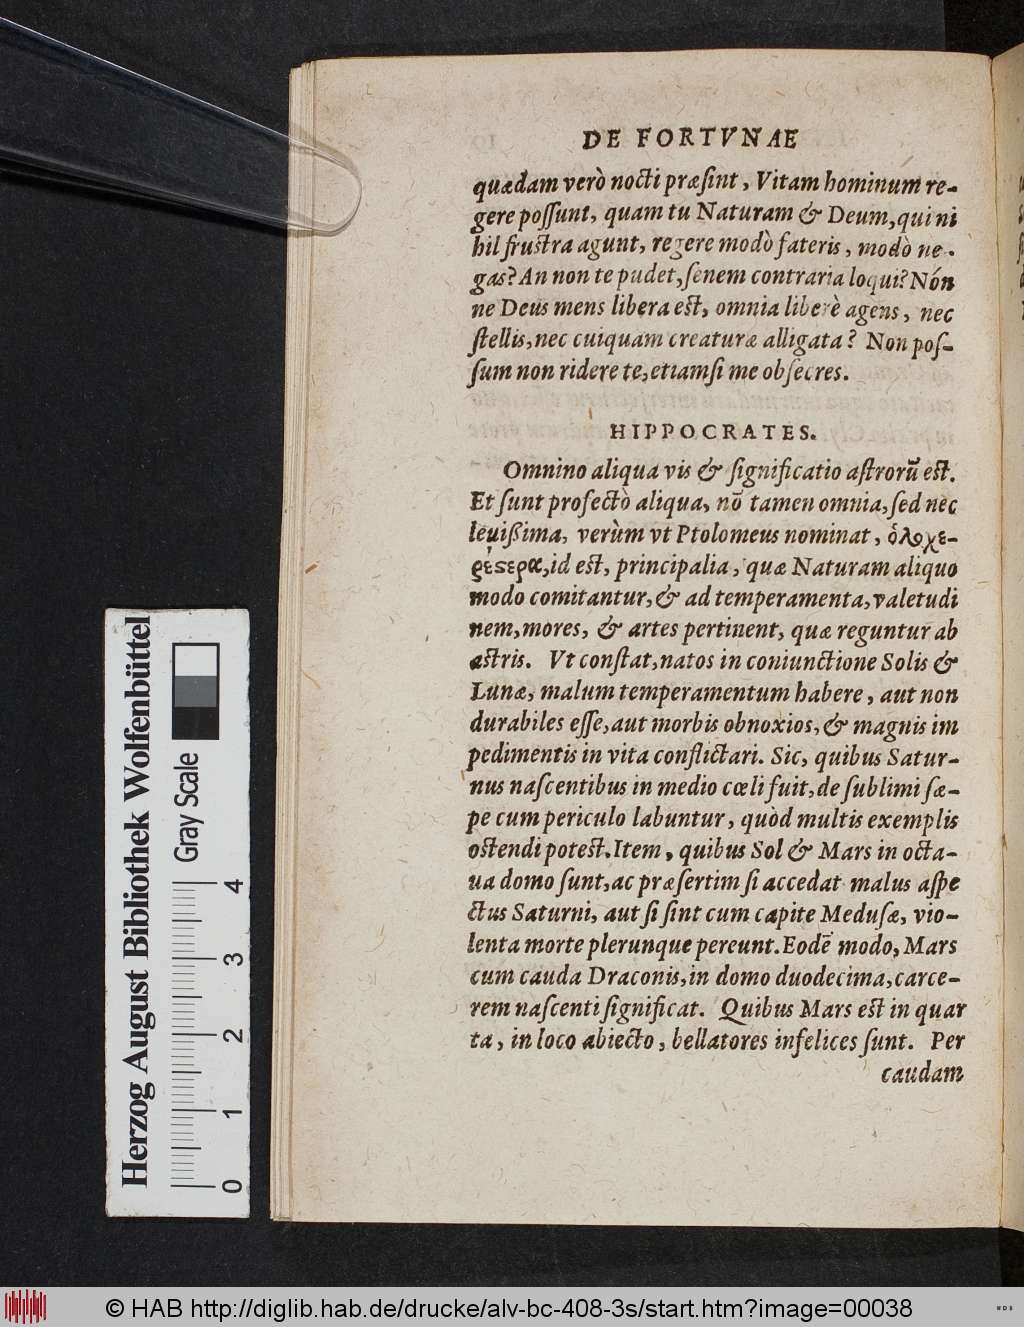 DE FORTVNAE
quædam verò nocti præsint, Vitam hominum re-
gere possunt, quam tu Naturam & Deum, qui ni
hil frustra agunt, regere modò fateris, modò ne-
gas? An non te pudet, senem contraria loqui? Nón
ne Deus mens libera est, omnia liberè agens, nec
stellis, nec cuiquam creaturæ alligata? Non pos-
sum non ridere te, etiamsi me obsecres.
HIPPOCRATES.
Omnino aliqua vis & significatio astrorū est.
Et sunt profectò aliqua, nō tamen omnia, sed nec
leuißima, verùm vt Ptolomeus nominat, ὁλοχε-
ρέϛερα, id est, principalia, quæ Naturam aliquo
modo comitantur, & ad temperamenta, valetudi
nem, mores, & artes pertinent, quæ reguntur ab
astris. Vt constat, natos in coniunctione Solis &
Lunæ, malum temperamentum habere, aut non
durabiles esse, aut morbis obnoxios, & magnis im
pedimentis in vita conflictari. Sic, quibus Satur-
nus nascentibus in medio cœli fuit, de sublimi sæ-
pe cum periculo labuntur, quòd multis exemplis
ostendi potest. Item, quibus Sol & Mars in octa-
ua domo sunt, ac præsertim si accedat malus aspe
ctus Saturni, aut si sint cum capite Medusæ, vio-
lenta morte plerunque pereunt. Eodē modo, Mars
cum cauda Draconis, in domo duodecima, carce-
rem nascenti significat. Quibus Mars est in quar
ta, in loco abiecto, bellatores infelices sunt. Per
caudam
Herzog August Bibliothek Wolfenbüttel
Gray Scale
0 1 2 3 4
© HAB http://diglib.hab.de/drucke/alv-bc-408-3s/start.htm?image=00038